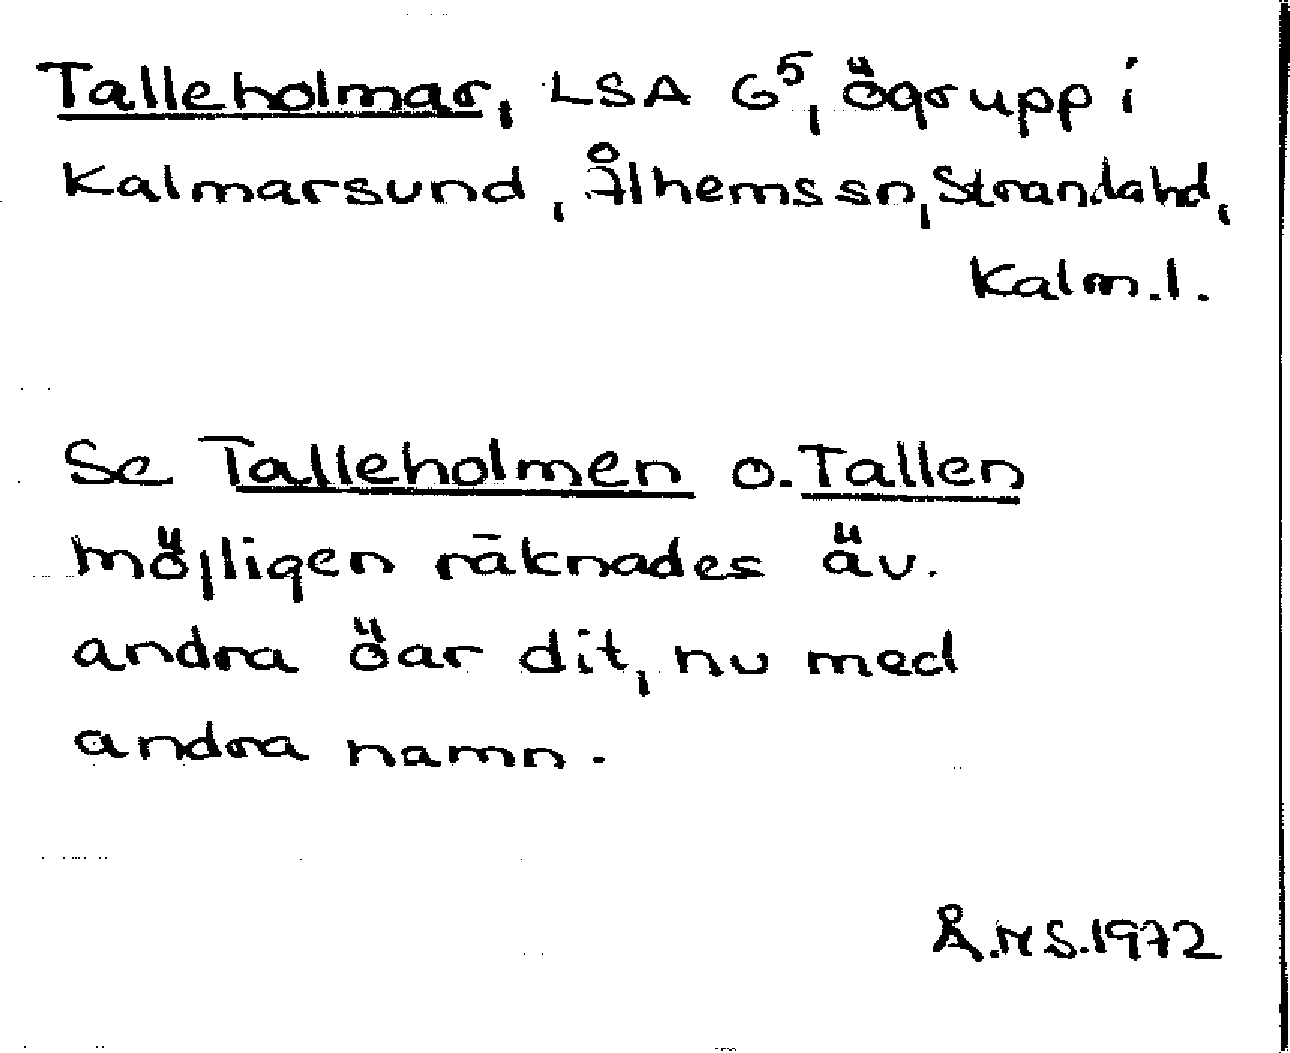 Talleholmar, LSA G⁵, ögrupp i
Kalmarsund, Ålhems sn, Stranda hd,
Kalm. l.
Se Talleholmen o. Tallen
möjligen räknades äv.
andra öar dit, nu med
andra namn.
Å.M S. 1972